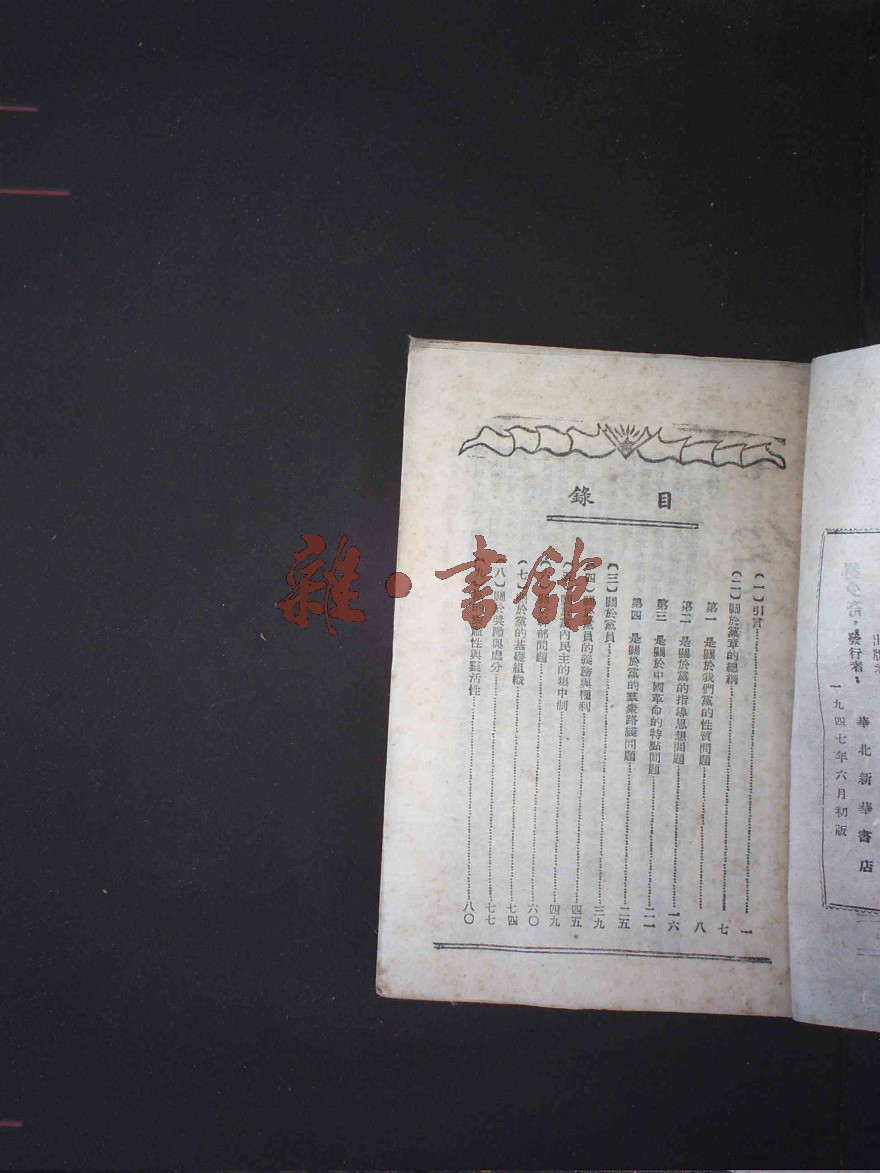 目錄
(一)引言 一
(二)關於黨章的總綱 七
第一 是關於我們黨的性質問題 八
第二 是關於黨的指導思想問題 一六
第三 是關於中國革命的特點問題 二一
第四 是關於黨的羣衆路綫問題 二五
(三)關於黨員 三九
(四)關 黨員的義務與權利 四五
黨內民主的集中制 四九
幹部問題 六〇
(七)關於黨的基礎組織 七四
(八)關於獎勵與處分 七七
性與靈活性 八〇
發行者:
華北新華書店
一九四七年六月初版
雜·書館